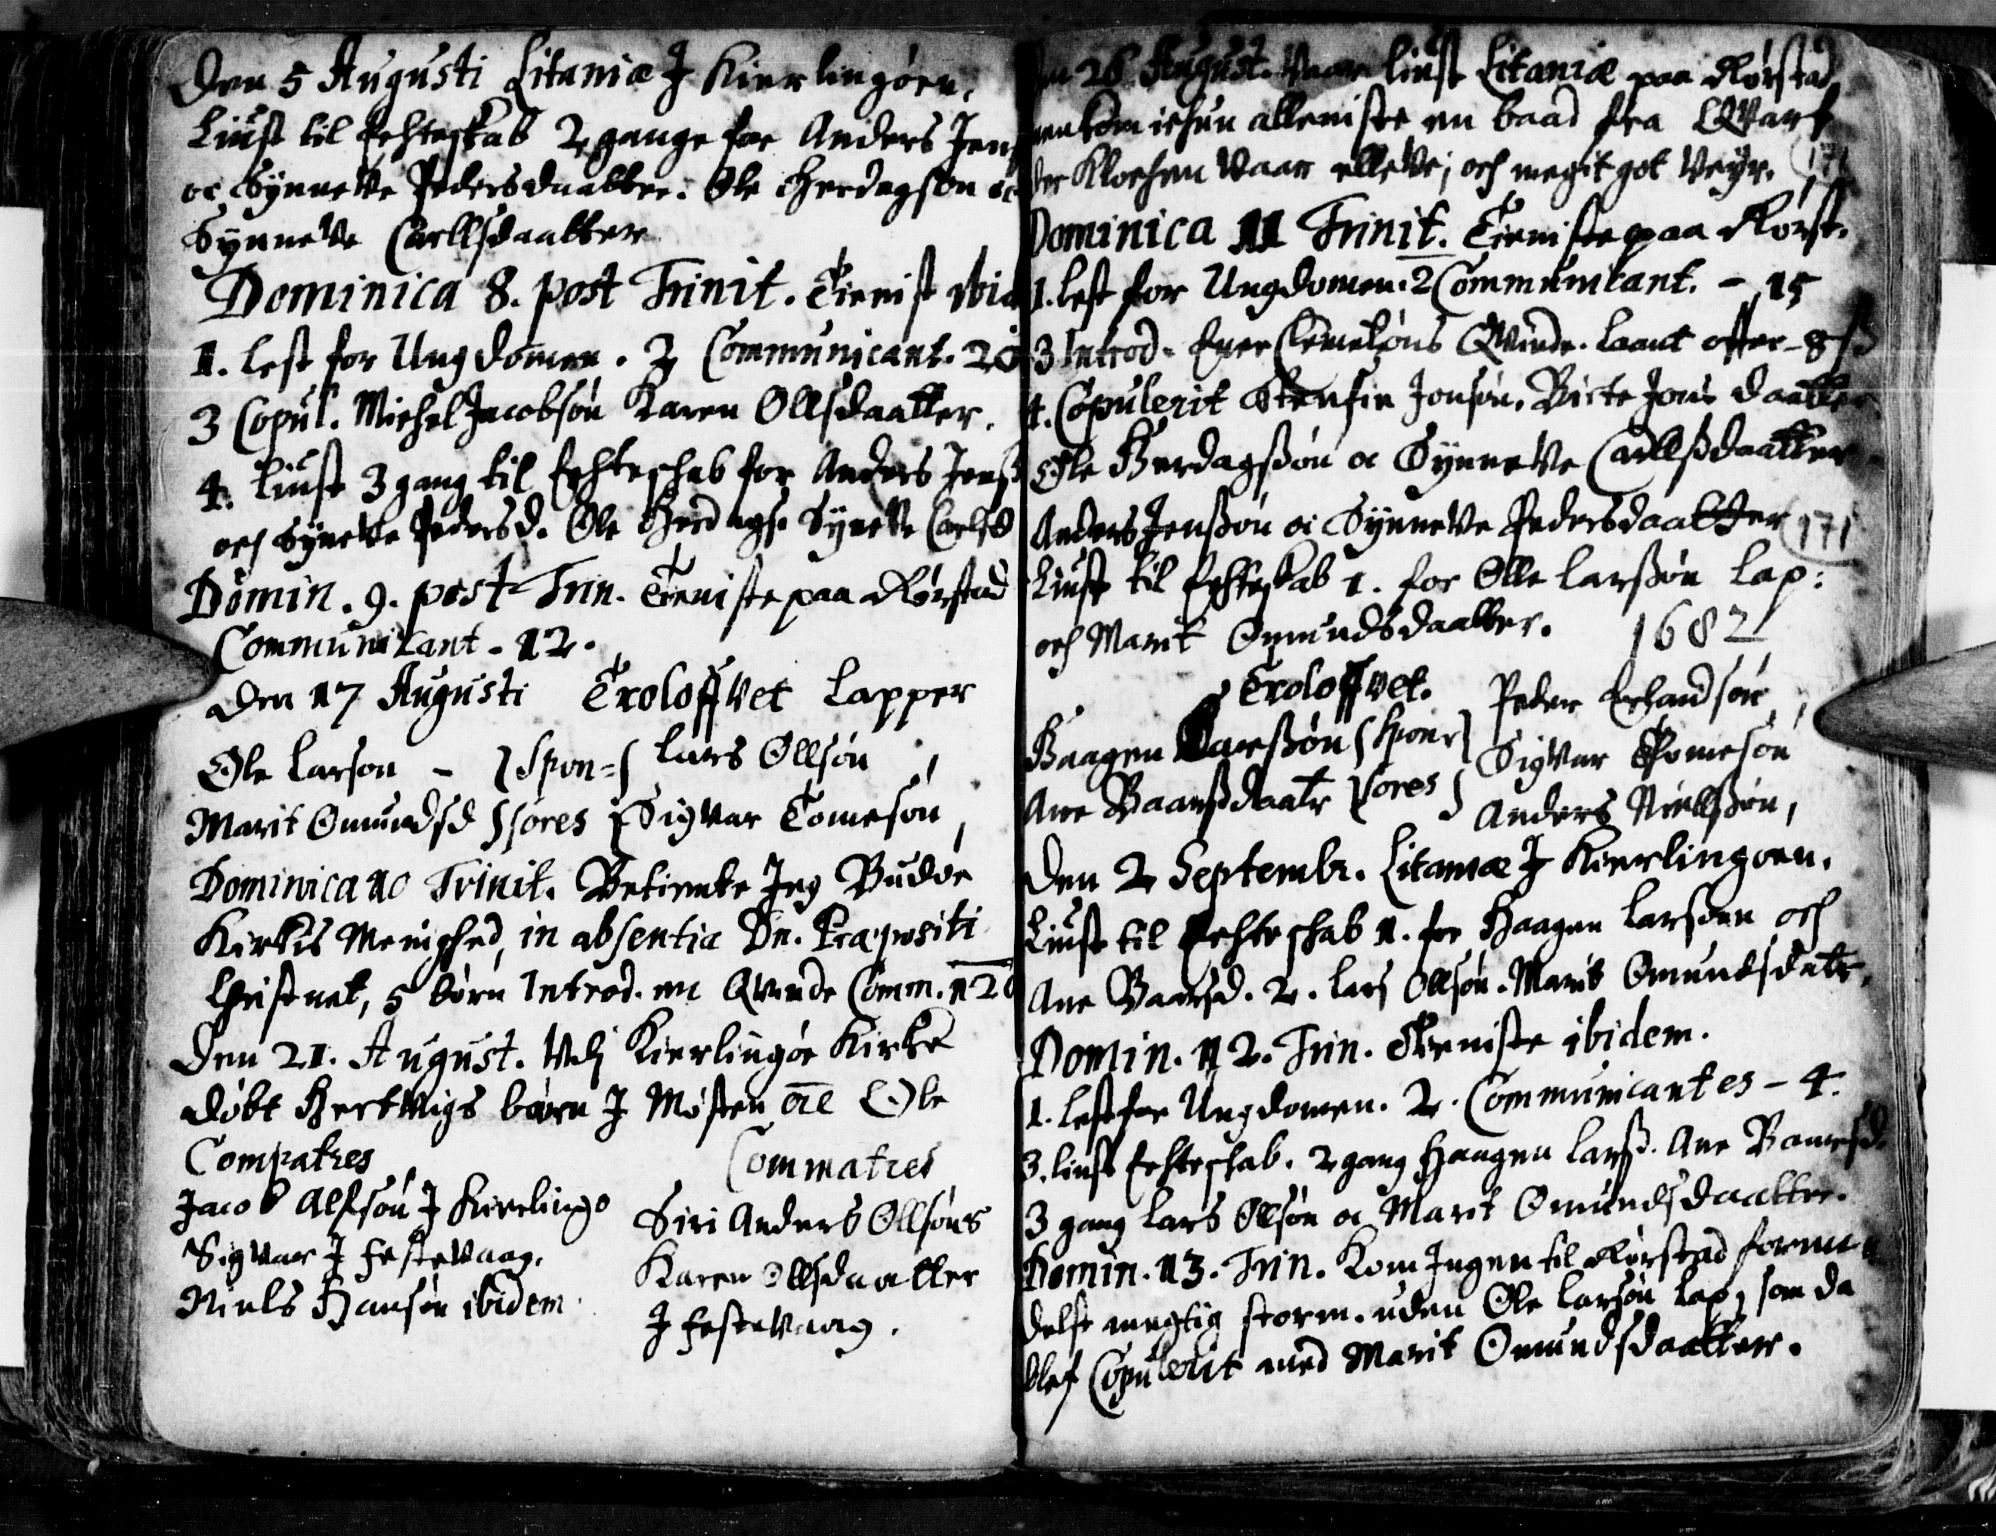 Den 5 Augusti Litaniæ J Kierlingøen,
Liust til Echteskab 2 gange for Anders Jens
oc Synneve Pedersdaatter. Ole Herdagson oc
Synneve Carllsdaatter
Dominica 8. post Trinit. Tienist ibid
1. Lest for Ungdommen. 2 Communicant. 20
3 Copul. Michel Jacobsøn Karen Ollsdaatter.
4. Liust 3 gang til Echteschab for Anders Jenß
och Syneve Pedersd. Ole Herdags. Syneve Carlsd
Domin. 9. post Trin. Tieniste paa Rørstad
Communicant - 12.
Den 17 Augusti Troloffvet Lapper
Ole Larson - Spon= Lars Ollsøn,
Marit Omundsd sores Sigvar Tomesøn,
Dominica 10 Trinit. Betiente Jeg Budøe
Kirkis Menighed, in absentia Dn. Præpositi
Christnet, 5 børn Introd. en Qvinde Comm. 120
Den 21. August. Ved Kierlingøe Kirke
døbt Hertvigs barn J Misten Ole
Compatres
Commatres
Jacob Alfsøn J Kierlingø
Sigvar J Festevaag.
Niels Hansøn ibidem
Siri Anders Ollsøns
Karen Ollsdaatter
J Festevaag.
26 August. Vaar liust Litaniæ paa Rørstad
men kom ichun alleniste en baad fra Qvarf
der Klochen vaar elleve, och megit got Veyr. 171
Dominica 11 Trinit. Tieniste paa Rørst.
1. Lest for Ungdomen. 2 Communicant. - 15
3 Introd. Qvinde. offer - 8 ß
4. Copulerit Stenfin Jonsøn, Birte Jons daatter
Ole Herdagßøn oc Synneve Carllßdaatter
Anders Jenßøn oc Synneve Pedersdaatter 171
Liust til Echteskab 1. for Olle Larßøn Lap:
och Marit Omundsdaatter. 1682
Troloffvet. Peder Erhandsøn,
Haagen Larßøn Spon Sigvar Tomesøn
Ane Baarßdaatr sores Anders Niellßøn,
Den 2 Septembr. Litaniæ J Kierlingøen.
Liust til Echteschab 1. for Haagen Larsøen och
Ane Baarsd. 2. Lars Ollsøn. Marit Omundsdatr.
Domin. 12. Trin. Tieniste ibidem.
1. Lest for Ungdomen. 2. Communicantes - 4.
3. liust Echteschab. 2 gang Haagen Larß. Ane Baarsd.
3 gang Lars Ollsøn oc Marit Omundsdaatter.
Domin. 13. Trin. Kom Ingen til Rørstad forme=
delst megtig storm. uden Ole Larsøn Lap, som da
blef Copulerit med Marit Omundsdaatter.